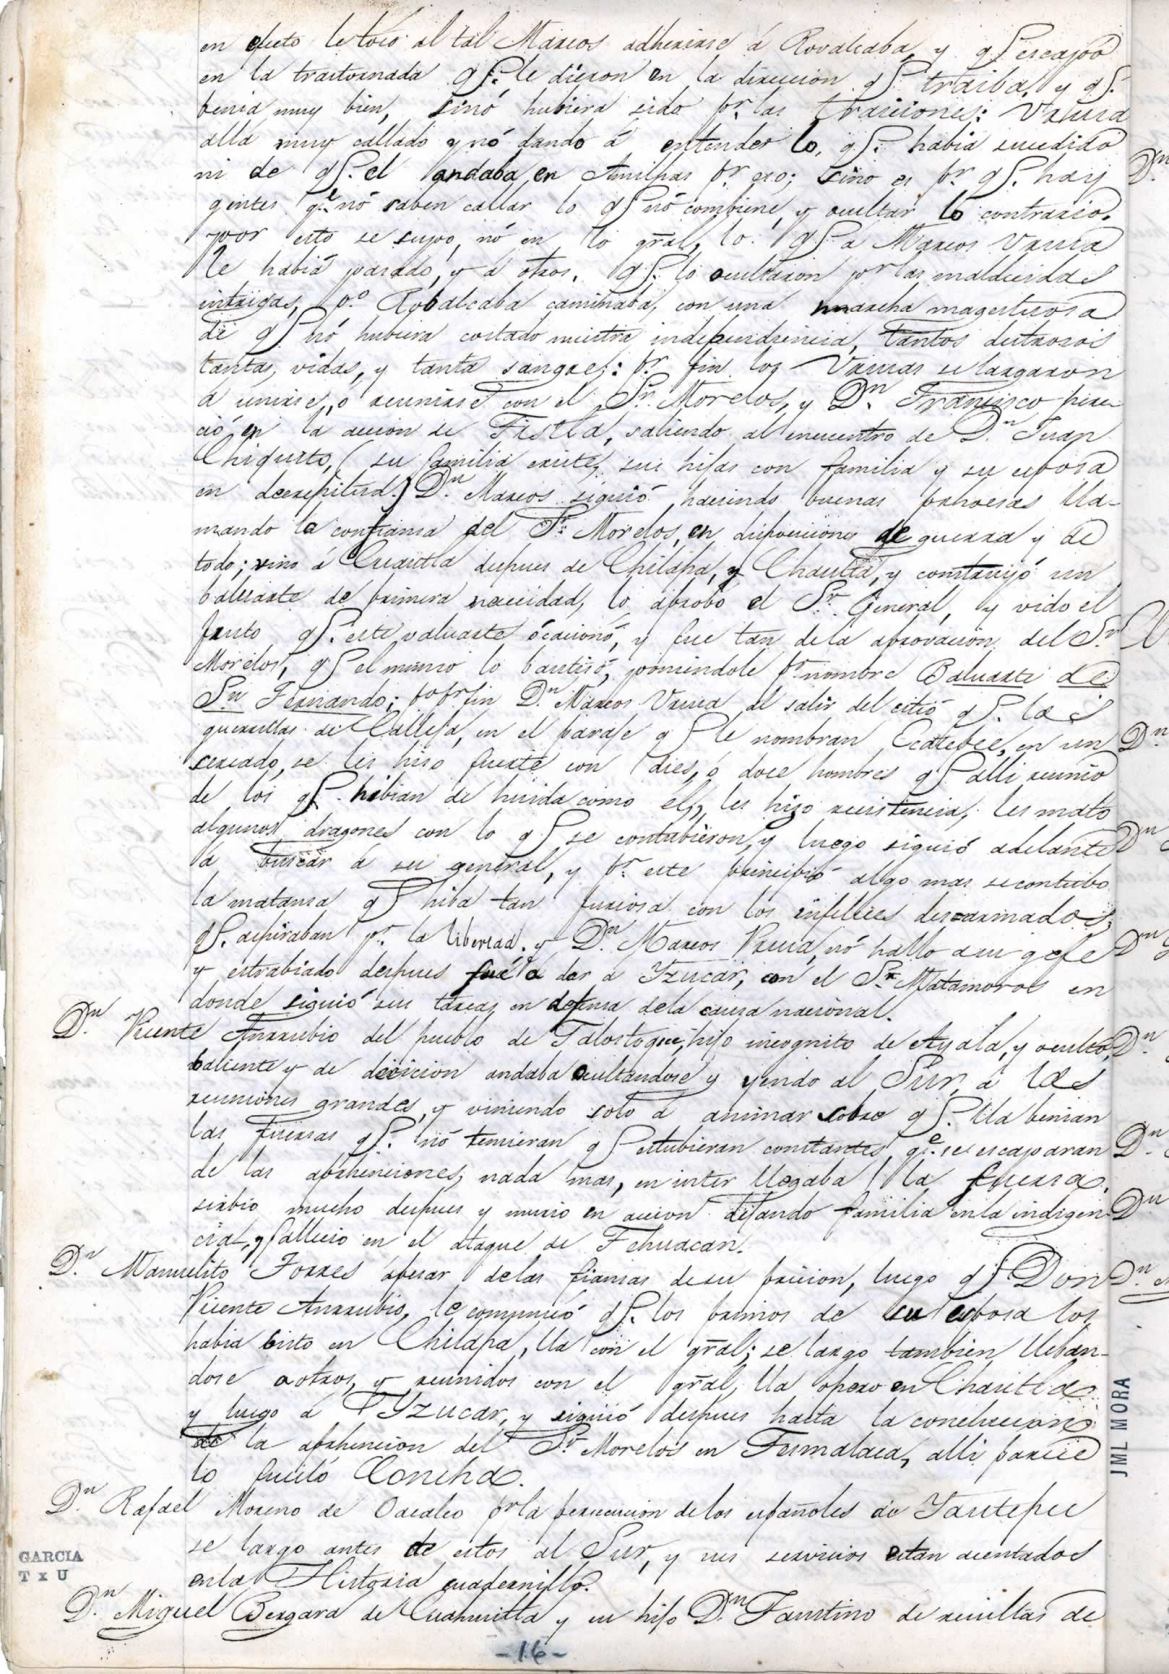 en efecto le toco al tal Marcos adherirse á Rovalcaba, y qe. escapó
en la trastornada qe. le dieron en la direccion qe. traiba, y qe.
benia muy bien, sinó hubiera sido pr. las traiciones: Vrusa
alla muy callado y nó dando á entender lo, qe. habia sucedido
ni de qe. el andaba en Amilpas pr. eso; sino es pr. qe. hay
gentes qe. nó saben callar lo qe. nó combiene, y ocultar lo contrario.
por esto se supo, nó en lo gral, lo qe. a Marcos
le habia pasado, y á otros. qe. lo ocultaron por las malditas
intrigas, Robalcaba caminaba, con una marcha magestuosa
de qe. nó hubiera costado nuestra independiencia, tantos destrosos
tanta, vidas, y tanta sangre: pr. fin los se largaron
á unirse, o reunirse con el Sr. Morelos, y Dn. Francisco pere-
ció en la accion de Tistla, saliendo al encuentro de Dn. Juan
Chiquito, (su familia existe, sus hijas con familia y su esposa
en decrepitud.) Dn. Marcos siguió haciendo buenas prohesas lla-
mando la confiansa del Sr. Morelos, en disposiciones de guerra y de
todo; vino á Cuautla despues de Chilapa, y Chautla, y construyó un
baluarte de primera necesidad, lo aprobó el Sr. General, y vido el
fruto qe. este valuarte ócacionó, y fue tan de la aprovacion, del Sr.
Morelos, qe. el mismo lo bautisó, poniendole pr. nombre Baluarte de
Sn. Fernando; pr. fin Dn. Marcos al salir del citió qe. las
guerrillas de Calleja, en el paraje qe. le nombran Ecatebec, en un
sercado, se les hiso fuerte con dies, o doce hombres qe. alli reunio
de los qe. habian de huida como él, les hizo resistencia, les mato
algunos dragones con lo qe. se contubieron, y luego siguió adelante
á buscar á su general, y pr. este principió algo mas se contubo
la matansa qe. hiba tan furiosa con los infelices desarmados,
qe. aspiraban pr. la libertad. y Dn. Marcos nó hallo a su gefe
y estrabiado despues fué á dar á Yzucar, con el Sr. Matamoros en
donde siguió sus tareas en defensa de la causa nacional.
Dn. Vicente Anzubio del pueblo de Talostoque, hijo incognito de Ayala, y oculto,
baliente y de decicion andaba ocultandose y yendo al Sur, á las
reuniones grandes, y viniendo solo á animar sobre qe. lla benian
las fuersas qe. nó temieran qe. estubieran constantes, qe. se escaparan
de las aprehenciones, nada mas, en inter llegaba la fuersa.
sirbio mucho despues y murio en accion dejando familia en la indigen-
cia, y fallecio en el ataque de Tehuacan.
Dn. Manuelito Torres apesar de las fiansas de su pricion, luego qe. Don
Vicente Anzubio, le comunicó qe. los primos de su esposa los
habia bisto en Chilapa, lla con el gral; se largo tambien lleban-
dose a otros, y reunidos con el gral, lla opero en Chautla
y luego á Yzucar, y siguió despues hasta la conclucion
de la aprehencion del Sr. Morelos en Tesmalaca, alli parece
lo fuciló Concha.
Dn. Rafael Moreno de Oacalco pr. la percecucion de los españoles de Yautepec
se largo antes de estos al Sur, y sus servicios estan acentados
en la Historia cuadernillo.
Dn. Miguel Bergara de Cuahuitla y su hijo Dn. Faustino de resultas de
-16-
GARCIA
T x U
JML MORA